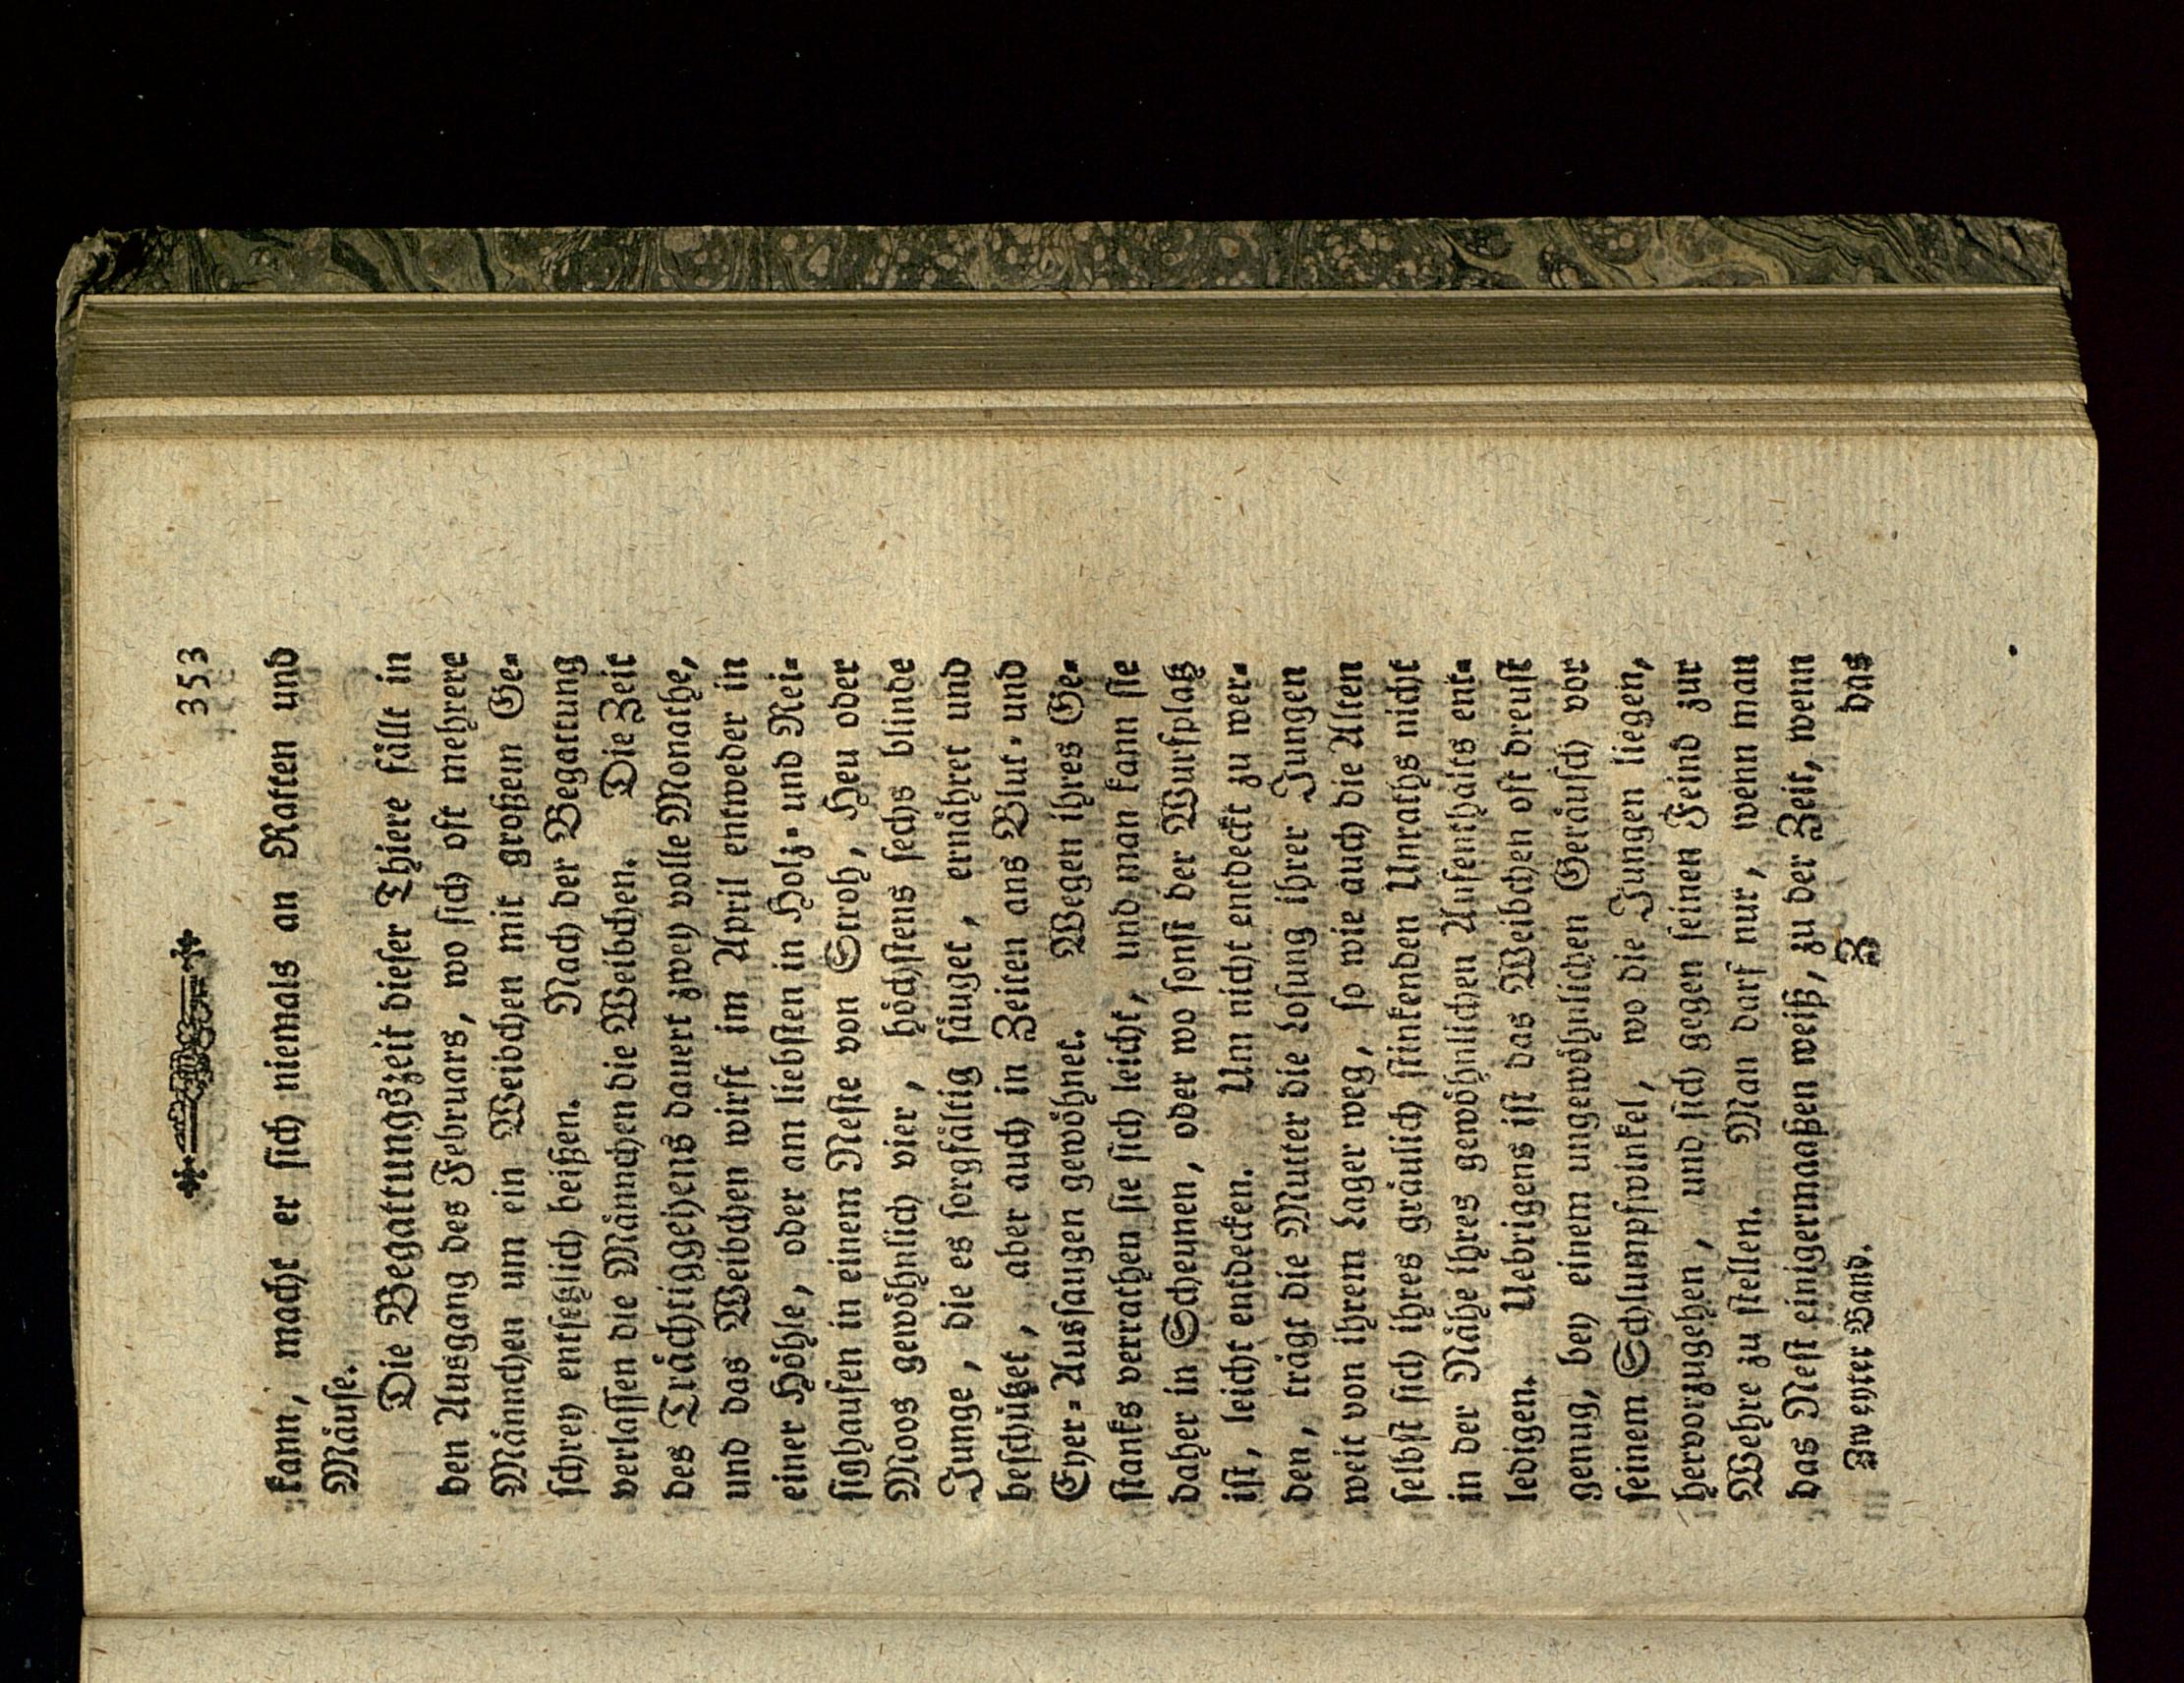 353
kann, macht er sich niemals an Ratten und
Mäuse.
Die Begattungszeit dieser Thiere fällt in
den Ausgang des Februars, wo sich oft mehrere
Männchen um ein Weibchen mit großem Ge-
schrey entsetzlich beißen. Nach der Begattung
verlassen die Männchen die Weibchen. Die Zeit
des Trächtiggehens dauert zwey volle Monathe,
und das Weibchen wirft im April entweder in
einer Höhle, oder am liebsten in Holz- und Rei-
sighaufen in einem Neste von Stroh, Heu oder
Moos gewöhnlich vier, höchstens sechs blinde
Junge, die es sorgfältig säuget, ernähret und
beschützet, aber auch in Zeiten ans Blut- und
Eyer-Aussaugen gewöhnet. Wegen ihres Ge-
stanks verrathen sie sich leicht, und man kann sie
daher in Scheunen, oder wo sonst der Wurfplatz
ist, leicht entdecken. Um nicht entdeckt zu wer-
den, trägt die Mutter die Losung ihrer Jungen
weit von ihrem Lager weg, so wie auch die Alten
selbst sich ihres gräulich stinkenden Unraths nicht
in der Nähe ihres gewöhnlichen Aufenthalts ent-
ledigen. Uebrigens ist das Weibchen oft dreust
genug, bey einem ungewöhnlichen Geräusch vor
seinem Schlumpfwinkel, wo die Jungen liegen,
hervorzugehen, und sich gegen seinen Feind zur
Wehre zu stellen. Man darf nur, wenn man
das Nest einigermaaßen weiß, zu der Zeit, wenn
Zweyter Band. Z das